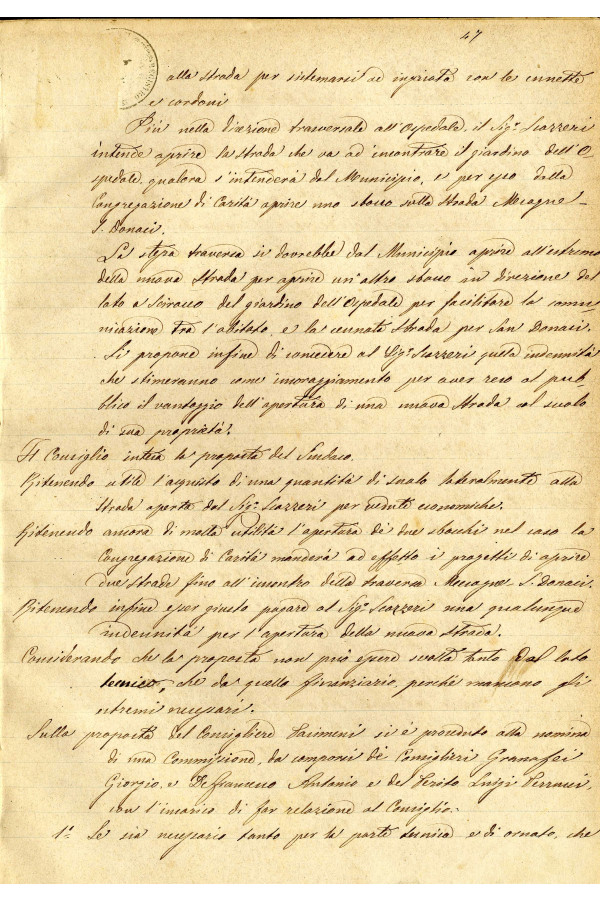 47
alla strada per sistemarsi ed inpriata con le cunette
e cordoni
Più nella direzione trasversale all'Ospedale, il Sigr. Scazzeri
intende aprire la strada che va ad incontrare il giardino dell'O-
spedale, qualora s'intenderà dal Municipio, e per esso dalla
Congregazione di Carità aprire uno sbocco sulla strada Mesagne-
S. Donaci.
La stessa traversa si dovrebbe dal Municipio aprire all'estremo
della nuova Strada per aprire un'altro sbocco in direzione del
lato a Scirocco del giardino dell'Ospedale per facilitare la comu-
nicazione tra l'abitato, e la cennata Strada per San Donaci.
Si propone infine di concedere al Sigr. Scazzeri quella indennità
che stimeranno come incoraggiamento per aver reso al pub-
blico il vantaggio dell'apertura di una nuova Strada col suolo
di sua proprietà.
Il Consiglio intesa la proposta del Sindaco.
Ritenendo utile l'acquisto di una quantità di suolo lateralmente alla
Strada aperta dal Sigr. Scazzeri per vedute economiche.
Ritenendo ancora di molta utilità l'apertura di due sbocchi nel caso la
Congregazione di Carità manderà ad effetto i progetti di aprire
due strade fino all'incontro della traversa Mesagne S. Donaci.
Ritenendo infine esser giusto pagare al Sigr. Scazzeri una qualunque
indennità per l'apertura della nuova Strada.
Considerando che la proposta non può essere svolta tanto dal lato
tecnico, che da quello finanziario, perché mancano gli
estremi necessari.
Sulla proposta del Consigliere si è proceduto alla nomina
di una Commissione, da comporsi dè Consiglieri Granafei
Giorgio, e Deffrancesco Antonio e del Perito Luigi
con l'incarico di far relazione al Consiglio.
1º Se sia necessario tanto per la parte tecnica e di ornato, che